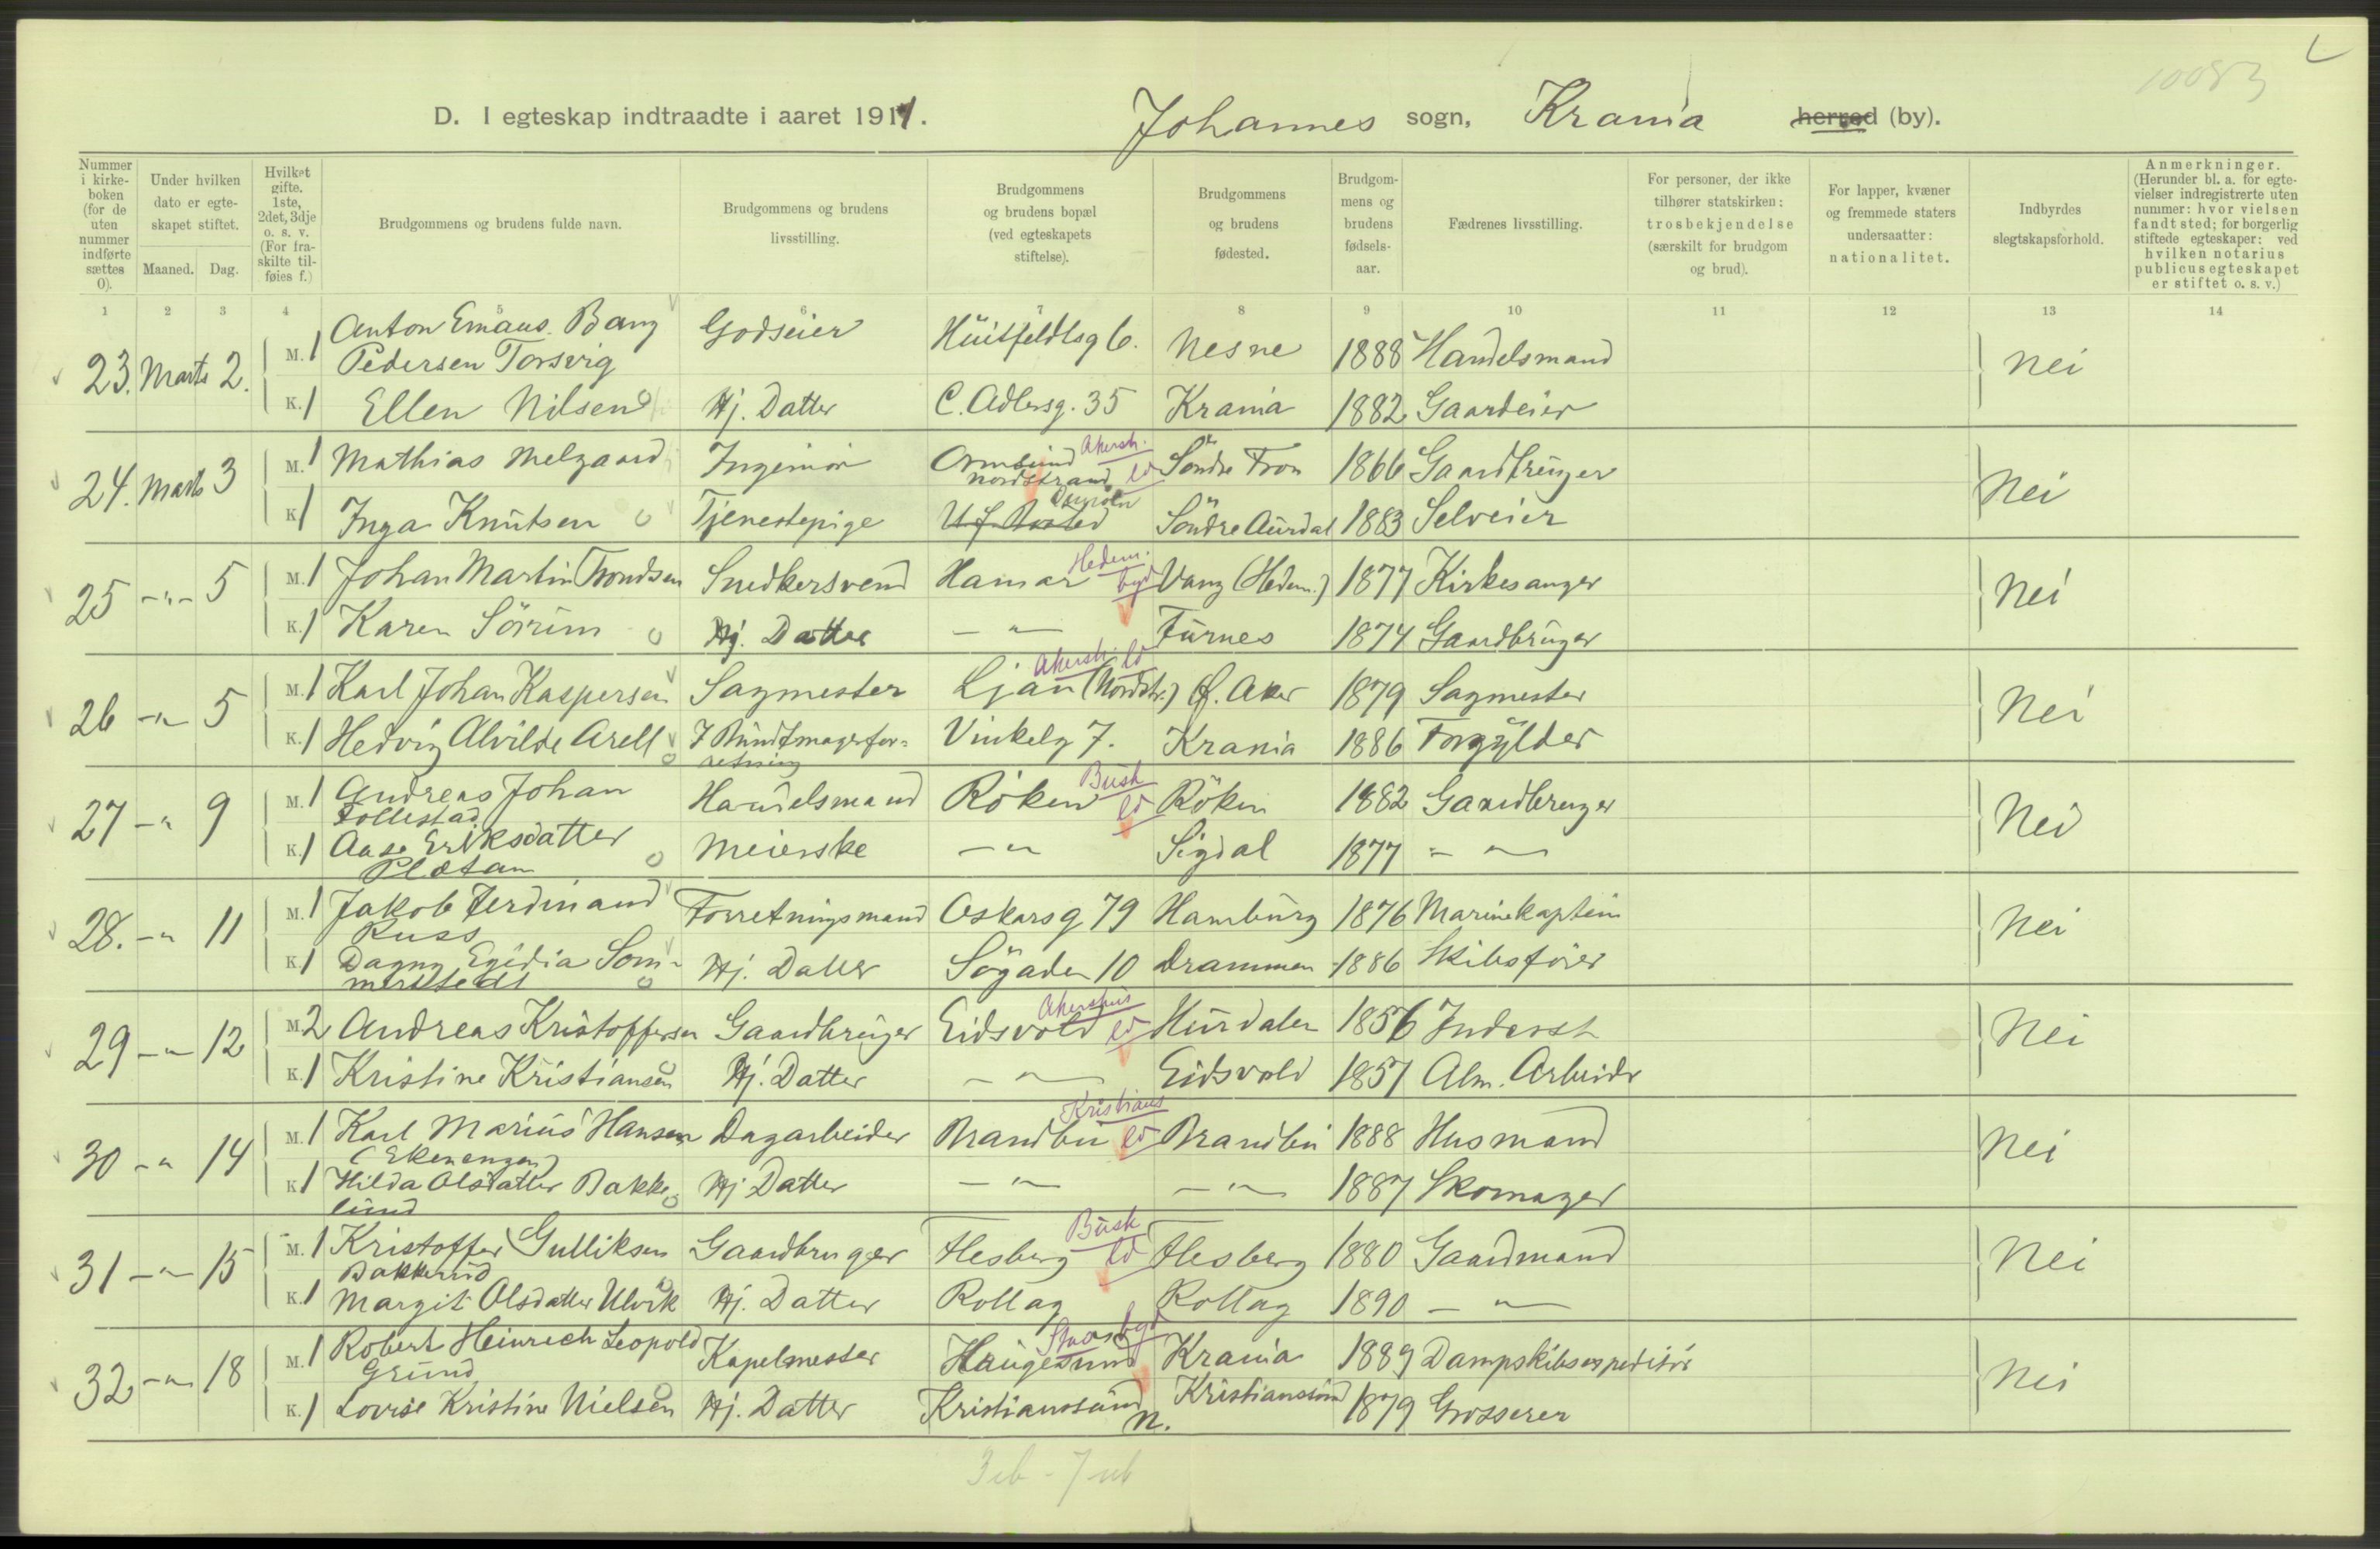 10083
D. I egteskap indtraadte i aaret 1911. Johannes sogn, Krania herred (by).
Nummer i kirke-boken (for de uten nummer indførte sættes 0).
Under hvilken dato er egte-skapet stiftet.
Maaned. Dag.
Hvilket gifte. 1ste, 2det, 3dje o. s. v. (For fra-skilte til-føies f.)
Brudgommens og brudens fulde navn.
Brudgommens og brudens livsstilling.
Brudgommens og brudens bopæl (ved egteskapets stiftelse).
Brudgommens og brudens fødested.
Brudgom-mens og brudens fødsels-aar.
Fædrenes livsstilling.
For personer, der ikke tilhører statskirken: trosbekjendelse (særskilt for brudgom og brud).
For lapper, kvæner og fremmede staters undersaatter: nationalitet.
Indbyrdes slegtskapsforhold.
Anmerkninger. (Herunder bl. a. for egte-vielser indregistrerte uten nummer: hvor vielsen fandt sted; for borgerlig stiftede egteskaper: ved hvilken notarius publicus egteskapet er stiftet o. s. v.)
1 2 3 4 5 6 7 8 9 10 11 12 13 14
23. Marts 2. M. 1 Anton Emaus Bang Pedersen Torsvig Godseier Huitfeldtsg 6. Nesne 1888 Handelsmand Nei
K. 1 Ellen Nilsen Hj. Datter C. Adlersg. 35 Krania 1882 Gaardeier
24. Marts 3 M. 1 Mathias Melgaard Ingeniør Ormsund Nordstrand Akersh. ld Søndre Fron 1866 Gaardbruger Nei
K. 1 Inga Knutsen Tjenestepige Søndre Aurdal 1883 Selveier
25 -"- 5 M. 1 Johan Martin Trondsen Snedkersvend Hamar Hedem. byd Vang (Hedem.) 1877 Kirkesanger Nei
K. 1 Karen Sörum Hj. Datter -"- Furnes 1874 Gaardbruger
26 -"- 5 M. 1 Karl Johan Kaspersen Sagmester Ljan (Nordstr.) Akersh. ld Ø. Aker 1879 Sagmester Nei
K. 1 Hedvig Alvilde Arell I Buntmagerfor=retning Vinkelg 7. Krania 1886 Forgylder
27 -"- 9 M. 1 Andreas Johan Follestad Handelsmand Röken Busk ld Röken 1882 Gaardbruger Nei
K. 1 Aase Eriksdatter Plætan Meierske -"- Sigdal 1877 -"-
28. -"- 11 M. 1 Jakob Ferdinand Russ Forretningsmand Oskarsg 79 Hamburg 1876 Marinekaptein Nei
K. 1 Dagny Egidia Som=merstedt Hj. Datter Søgaden 10 Drammen 1886 Skibsfører
29 -"- 12 M. 2 Andreas Kristoffersen Gaardbruger Eidsvold Akershus ld Hurdalen 1856 Inderst Nei
K. 1 Kristine Kristiansen Hj. Datter -"- Eidsvold 1857 Alm. Arbeider
30 -"- 14 M. 1 Karl Marius Hansen (Ekenengen) Dagarbeider Brandbu Kristians ld Brandbu 1888 Husmand Nei
K. 1 Hilda Olsdatter Bakkelund Hj Datter -"- -"- 1887 Skomager
31 -"- 15 M. 1 Kristoffer Gulliksen Bakkerud Gaardbruger Flesberg Busk ld Flesberg 1880 Gaardmand Nei
K. 1 Margit Olsdatter Ulvik Hj. Datter Rollag Rollag 1890 -"-
32 -"- 18 M. 1 Robert Heinrich Leopold Grund Kapelmester Haugesund Krania 1889 Dampskibsexpeditör Nei
K. 1 Lovise Kristine Nielsen Hj. Datter Kristianssund N. Kristianssund 1879 Grosserer